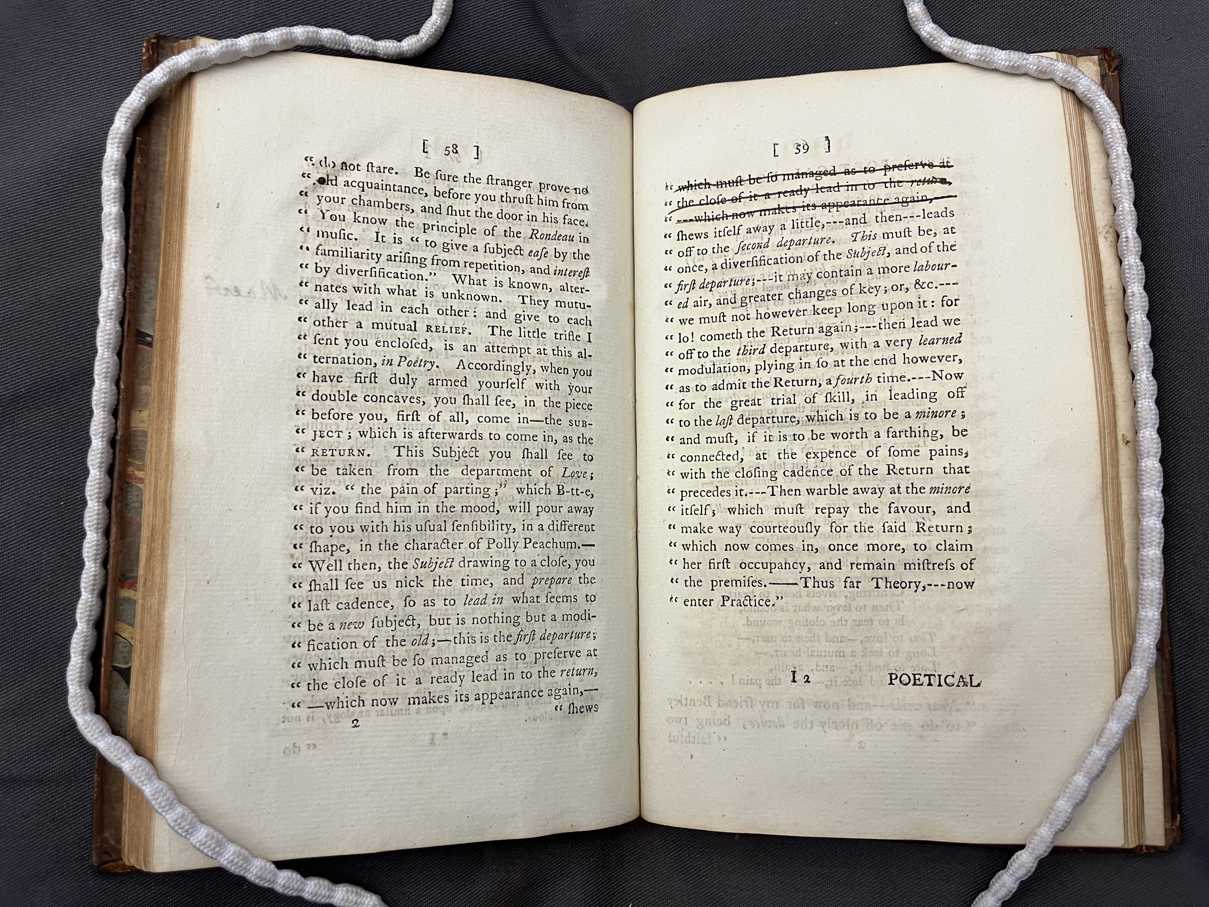 [ 58 ]
“ do not ſtare. Be ſure the ſtranger prove no
“ old acquaintance, before you thruſt him from
“ your chambers, and ſhut the door in his face.
“ You know the principle of the Rondeau in
“ muſic. It is “ to give a ſubject eaſe by the
“ familiarity ariſing from repetition, and intereſt
“ by diverſification.” What is known, alter-
“ nates with what is unknown. They mutu-
“ ally lead in each other: and give to each
“ other a mutual RELIEF. The little trifle I
“ ſent you encloſed, is an attempt at this al-
“ ternation, in Poetry. Accordingly, when you
“ have firſt duly armed yourſelf with your
“ double concaves, you ſhall ſee, in the piece
“ before you, firſt of all, come in—the SUB-
“ JECT; which is afterwards to come in, as the
“ RETURN. This Subject you ſhall ſee to
“ be taken from the department of Love;
“ viz. “ the pain of parting;” which B-tt-e,
“ if you find him in the mood, will pour away
“ to you with his uſual ſenſibility, in a different
“ ſhape, in the character of Polly Peachum.—
“ Well then, the Subject drawing to a cloſe, you
“ ſhall ſee us nick the time, and prepare the
“ laſt cadence, ſo as to lead in what ſeems to
“ be a new ſubject, but is nothing but a modi-
“ fication of the old;—this is the firſt departure;
“ which muſt be ſo managed as to preſerve at
“ the cloſe of it a ready lead in to the return,
“ —which now makes its appearance again,—
2
“ ſhews
[ 59 ]
“ which muſt be ſo managed as to preſerve at
“ the cloſe of it a ready lead in to the return,
“ ---which now makes its appearance again,—
“ ſhews itſelf away a little,---and then---leads
“ off to the ſecond departure. This muſt be, at
“ once, a diverſification of the Subject, and of the
“ firſt departure;---it may contain a more labour-
“ ed air, and greater changes of key; or, &c.---
“ we muſt not however keep long upon it: for
“ lo! cometh the Return again;---then lead we
“ off to the third departure, with a very learned
“ modulation, plying in ſo at the end however,
“ as to admit the Return, a fourth time.---Now
“ for the great trial of ſkill, in leading off
“ to the laſt departure, which is to be a minore;
“ and muſt, if it is to be worth a farthing, be
“ connected, at the expence of ſome pains,
“ with the cloſing cadence of the Return that
“ precedes it.---Then warble away at the minore
“ itſelf; which muſt repay the favour, and
“ make way courteouſly for the ſaid Return;
“ which now comes in, once more, to claim
“ her firſt occupancy, and remain miſtreſs of
“ the premiſes.——Thus far Theory,---now
“ enter Practice.”
I 2
POETICAL